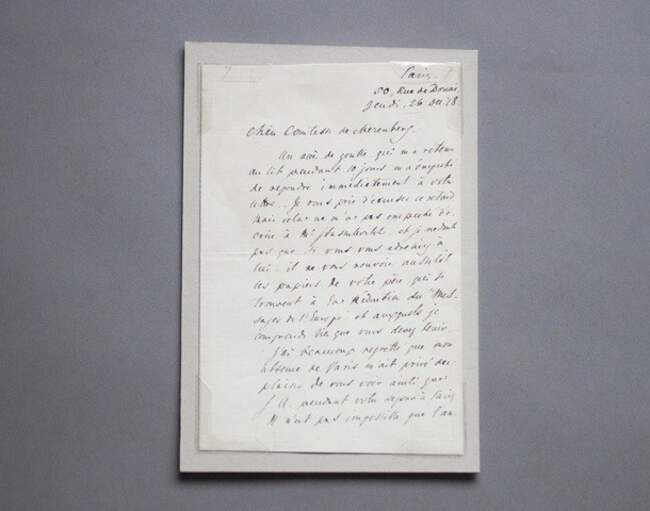 Paris.
50, Rue de Douai
Jeudi, 26 Dec. 78
Chère Comtesse de Merenberg.
Un accès de goutte qui m'a retenu
au lit pendant 10 jours m'a empêché
de répondre immédiatement à votre
lettre. Je vous prie d'excuser ce retard
mais cela ne m'a pas empêché d'é-
crire à Mr et je ne doute
pas que si vous vous adressiez à
lui il ne vous renvoie aussitôt
les papiers de votre père qui se
trouvent à la rédaction du "Mes-
sager de l'Europe" et auxquels je
comprends bien que vous devez tenir.
J'ai beaucoup regretté que mon
absence de Paris m'ait privé du
plaisir de vous voir ainsi que
S. A. pendant votre séjour à Paris
Il n'est pas impossible que l'an-